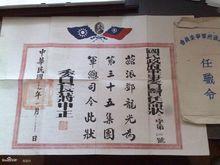 國民政府軍事委員會任狀
字第一號
茲派鄧龍光為
第三十五集團
軍總司令此狀
委員長蔣中正
中華民國
任職令